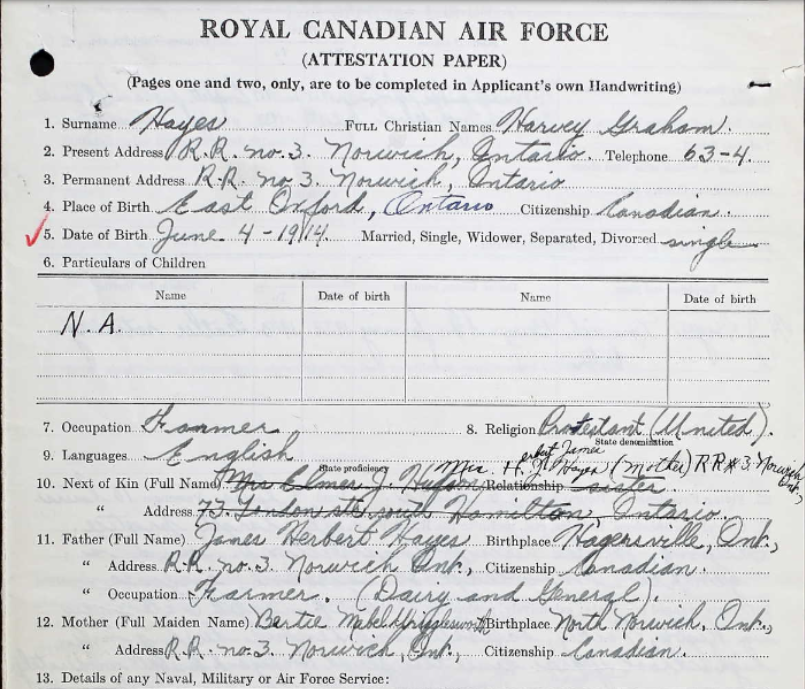 ROYAL CANADIAN AIR FORCE
(ATTESTATION PAPER)
(Pages one and two, only, are to be completed in Applicant's own Handwriting)
1. Surname Hayes FULL Christian Names Harvey Graham.
2. Present Address R.R. no. 3. Norwich, Ontario. Telephone 63-4.
3. Permanent Address R.R. no 3. Norwich, Ontario
4. Place of Birth East Oxford, Ontario Citizenship Canadian.
5. Date of Birth June 4 - 1914. Married, Single, Widower, Separated, Divorced single
6. Particulars of Children
Name Date of birth Name Date of birth
N.A.
7. Occupation Farmer 8. Religion Protestant (United).
State denomination
9. Languages English
State proficiency
erbert James
Mrs. H. J. Hayes (Mother) RR#3 Norwich Ont.,
10. Next of Kin (Full Name) Mrs Elmer J. Relationship sister
" Address 73 London St. south Hamilton, Ontario.
11. Father (Full Name) James Herbert Hayes Birthplace Hagersville, Ont.,
" Address R.R. no. 3 Norwich Ont., Citizenship Canadian.
" Occupation Farmer. (Dairy and General).
12. Mother (Full Maiden Name) Bertie Mabel Birthplace North Norwich, Ont.,
" Address R.R. no. 3. Norwich, Ont., Citizenship Canadian.
13. Details of any Naval, Military or Air Force Service: